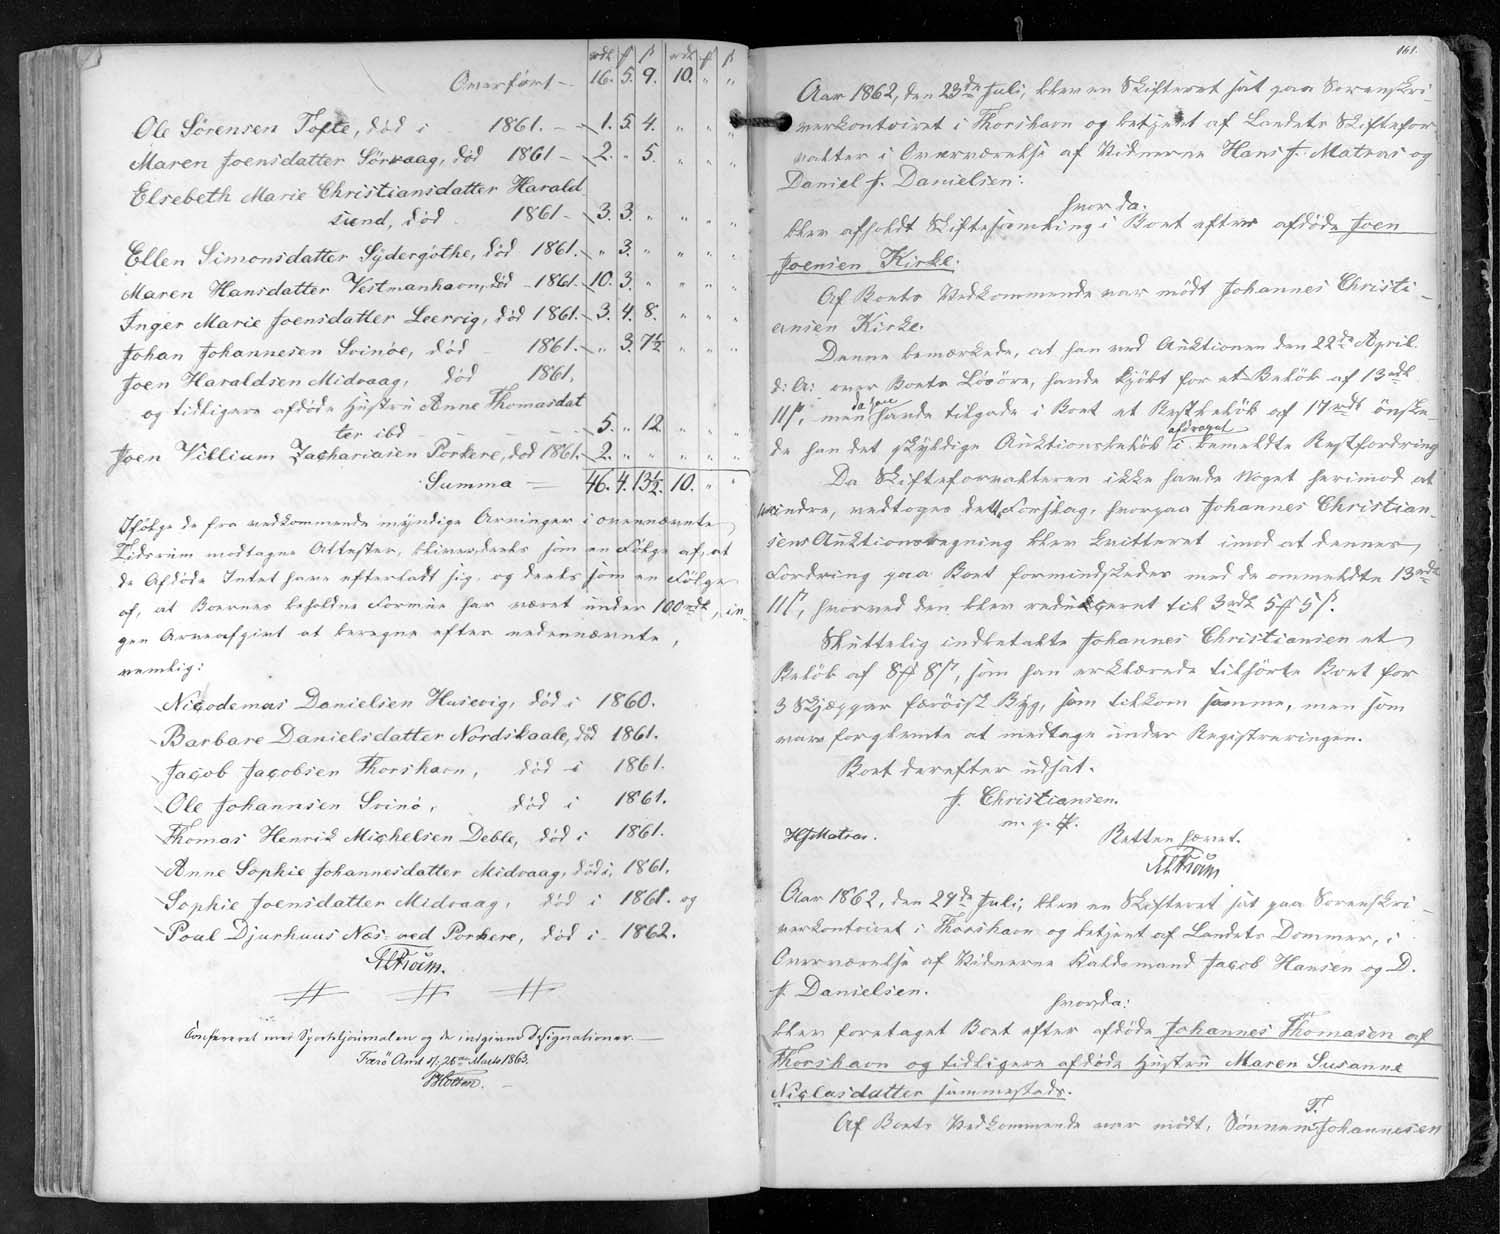 rdl ₰ ß rdl ₰ ß
Overført — 16. 5. 9. 10. " "
Ole Sörensen Tofte, död i 1861. — 1. 5. 4. " " "
Maren Joensdatter Sörvaag, död 1861 — 2. " 5. " " "
Elsebeth Marie Christiansdatter Harald
sund, död 1861 — 3. 3. " " " "
Ellen Simonsdatter Sydergöthe, död 1861. — " 3. " " " "
Maren Hansdatter Vestmanhavn, död — 1861 — 10. 3. " " " "
Inger Marie Joensdatter Leervig, död 1861. — 3. 4. 8. " " "
Johan Johannesen Svinöe, död 1861. — " 3. 7½ " " "
Joen Haraldsen Midvaag, död 1861.
og tidligere afdöde Hustru Anne Thomasdat
ter ibd — 5. " 12. " " "
Joen Villium Zachariasen Porkere, död 1861. 2. " " " " "
Summa — 46. 4. 13½. 10. " "
Ifölge de fra vedkommende myndige Arvinger i ovennævnte
Tidsrum modtagne Attester, bliver, deels som en Fölge af, at
de Afdöde Intet have efterladt sig, og deels som en Fölge
af, at Boernes beholdne Formue har været under 100 rdl, in-
gen Arveafgivt at beregne efter nedennævnte,
nemlig:
Nicodemus Danielsen Husevig, död i 1860.
Barbare Danielsdatter Nordskaale, död 1861.
Jacob Jacobsen Thorshavn, död i 1861.
Ole Johannsen Svinö, död i 1861.
Thomas Henrik Michelsen Deble, död i 1861.
Anne Sophie Johannesdatter Midvaag, död i, 1861.
Sophie Joensdatter Midvaag, död i 1861. og
Poul Djurhuus Næs ved Porkere, död i 1862.
Confereret med Sportljournalen og de indgivne Designationer. —
Færö Amt d. 26de Marts 1863.
161.
Aar 1862, den 23de Juli, blev en Skifteret sat paa Sorenskri-
verkontoiret i Thorshavn og betjent af Landets Skiftefor-
valter i Overværelse af Vidnerne Hans J. Matras og
Daniel J. Danielsen:
hvor da.
blev afholdt Skiftesamling i Boet efter afdöde Joen
Joensen Kirke.
Af Boets Vedkommende var mödt Johannes Christi-
ansen Kirke.
Denne bemærkede, at han ved Auktionen den 22de April
d: A: over Boets Lösöre, havde kjöbt for et Belöb af 13 rdl
11 ß, men da han havde tilgode i Boet et Restbelöb af 17 rdl önske-
de han det skyldige Auktionsbelöb afdraget i bemeldte Restfordring
Da Skifteforvalteren ikke havde Noget herimod at
erindre, vedtoges dette Forslag, hvorpaa Johannes Christian-
sens Auktionsregning blev kvitteret imod at dennes
Fordring paa Boet formindskedes med de ommeldte 13 rdl
11 ß, hvorved den blev reduceret til 3 rdl 5 ₰ 5 ß.
Skuttelig indbetalte Johannes Christiansen et
Belöb af 8 ₰ 8 ß, som han erklærede tilhörte Boet for
3 Skjæpper færöisk Byg, som tilkom samme, men som
vare forglemte at medtage under Registreringen.
Boet derefter udsat.
J. Christiansen.
m. p. P.
HJMatras. Retten hævet.
Aar 1862, den 29de Juli, blev en Skifteret sat paa Sorenskri-
verkontoiret i Thorshavn og betjent af Landets Dommer, i
Overværelse af Vidnerne Kaldsmand Jacob Hansen og D.
J. Danielsen.
hvorda:
blev foretaget Boet efter afdöde Johannes Thomasen af
Thorshavn og tidligere afdöde Hustru Maren Susanne
Niclasdatter sammesteds.
Af Boets Vedkommende var mödt, Sönnen T. Johannesen